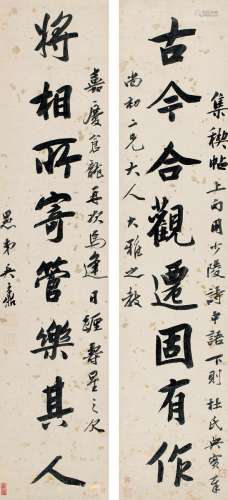 集稧帖上句用少陵詩中語下則杜氏典實
古今合觀遷固有作
尚初二兄大人大雅之教
嘉慶倉龍再次焉逢日躔壽星之次
將相所寄管樂其人
愚弟吳鼒